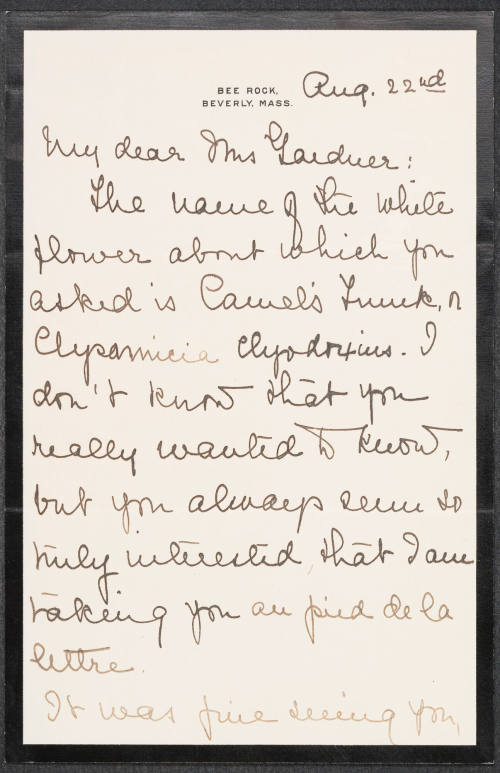 BEE ROCK,
BEVERLY, MASS.
Aug. 22nd
My dear Mrs Gardner:
The name of the white
flower about which you
asked is Camel's Trunk, or
Clyparmicia clyodoxius. I
don't know that you
really wanted to know,
but you always seem so
truly interested, that I am
taking you au pied de la
lettre.
It was fine seeing you,